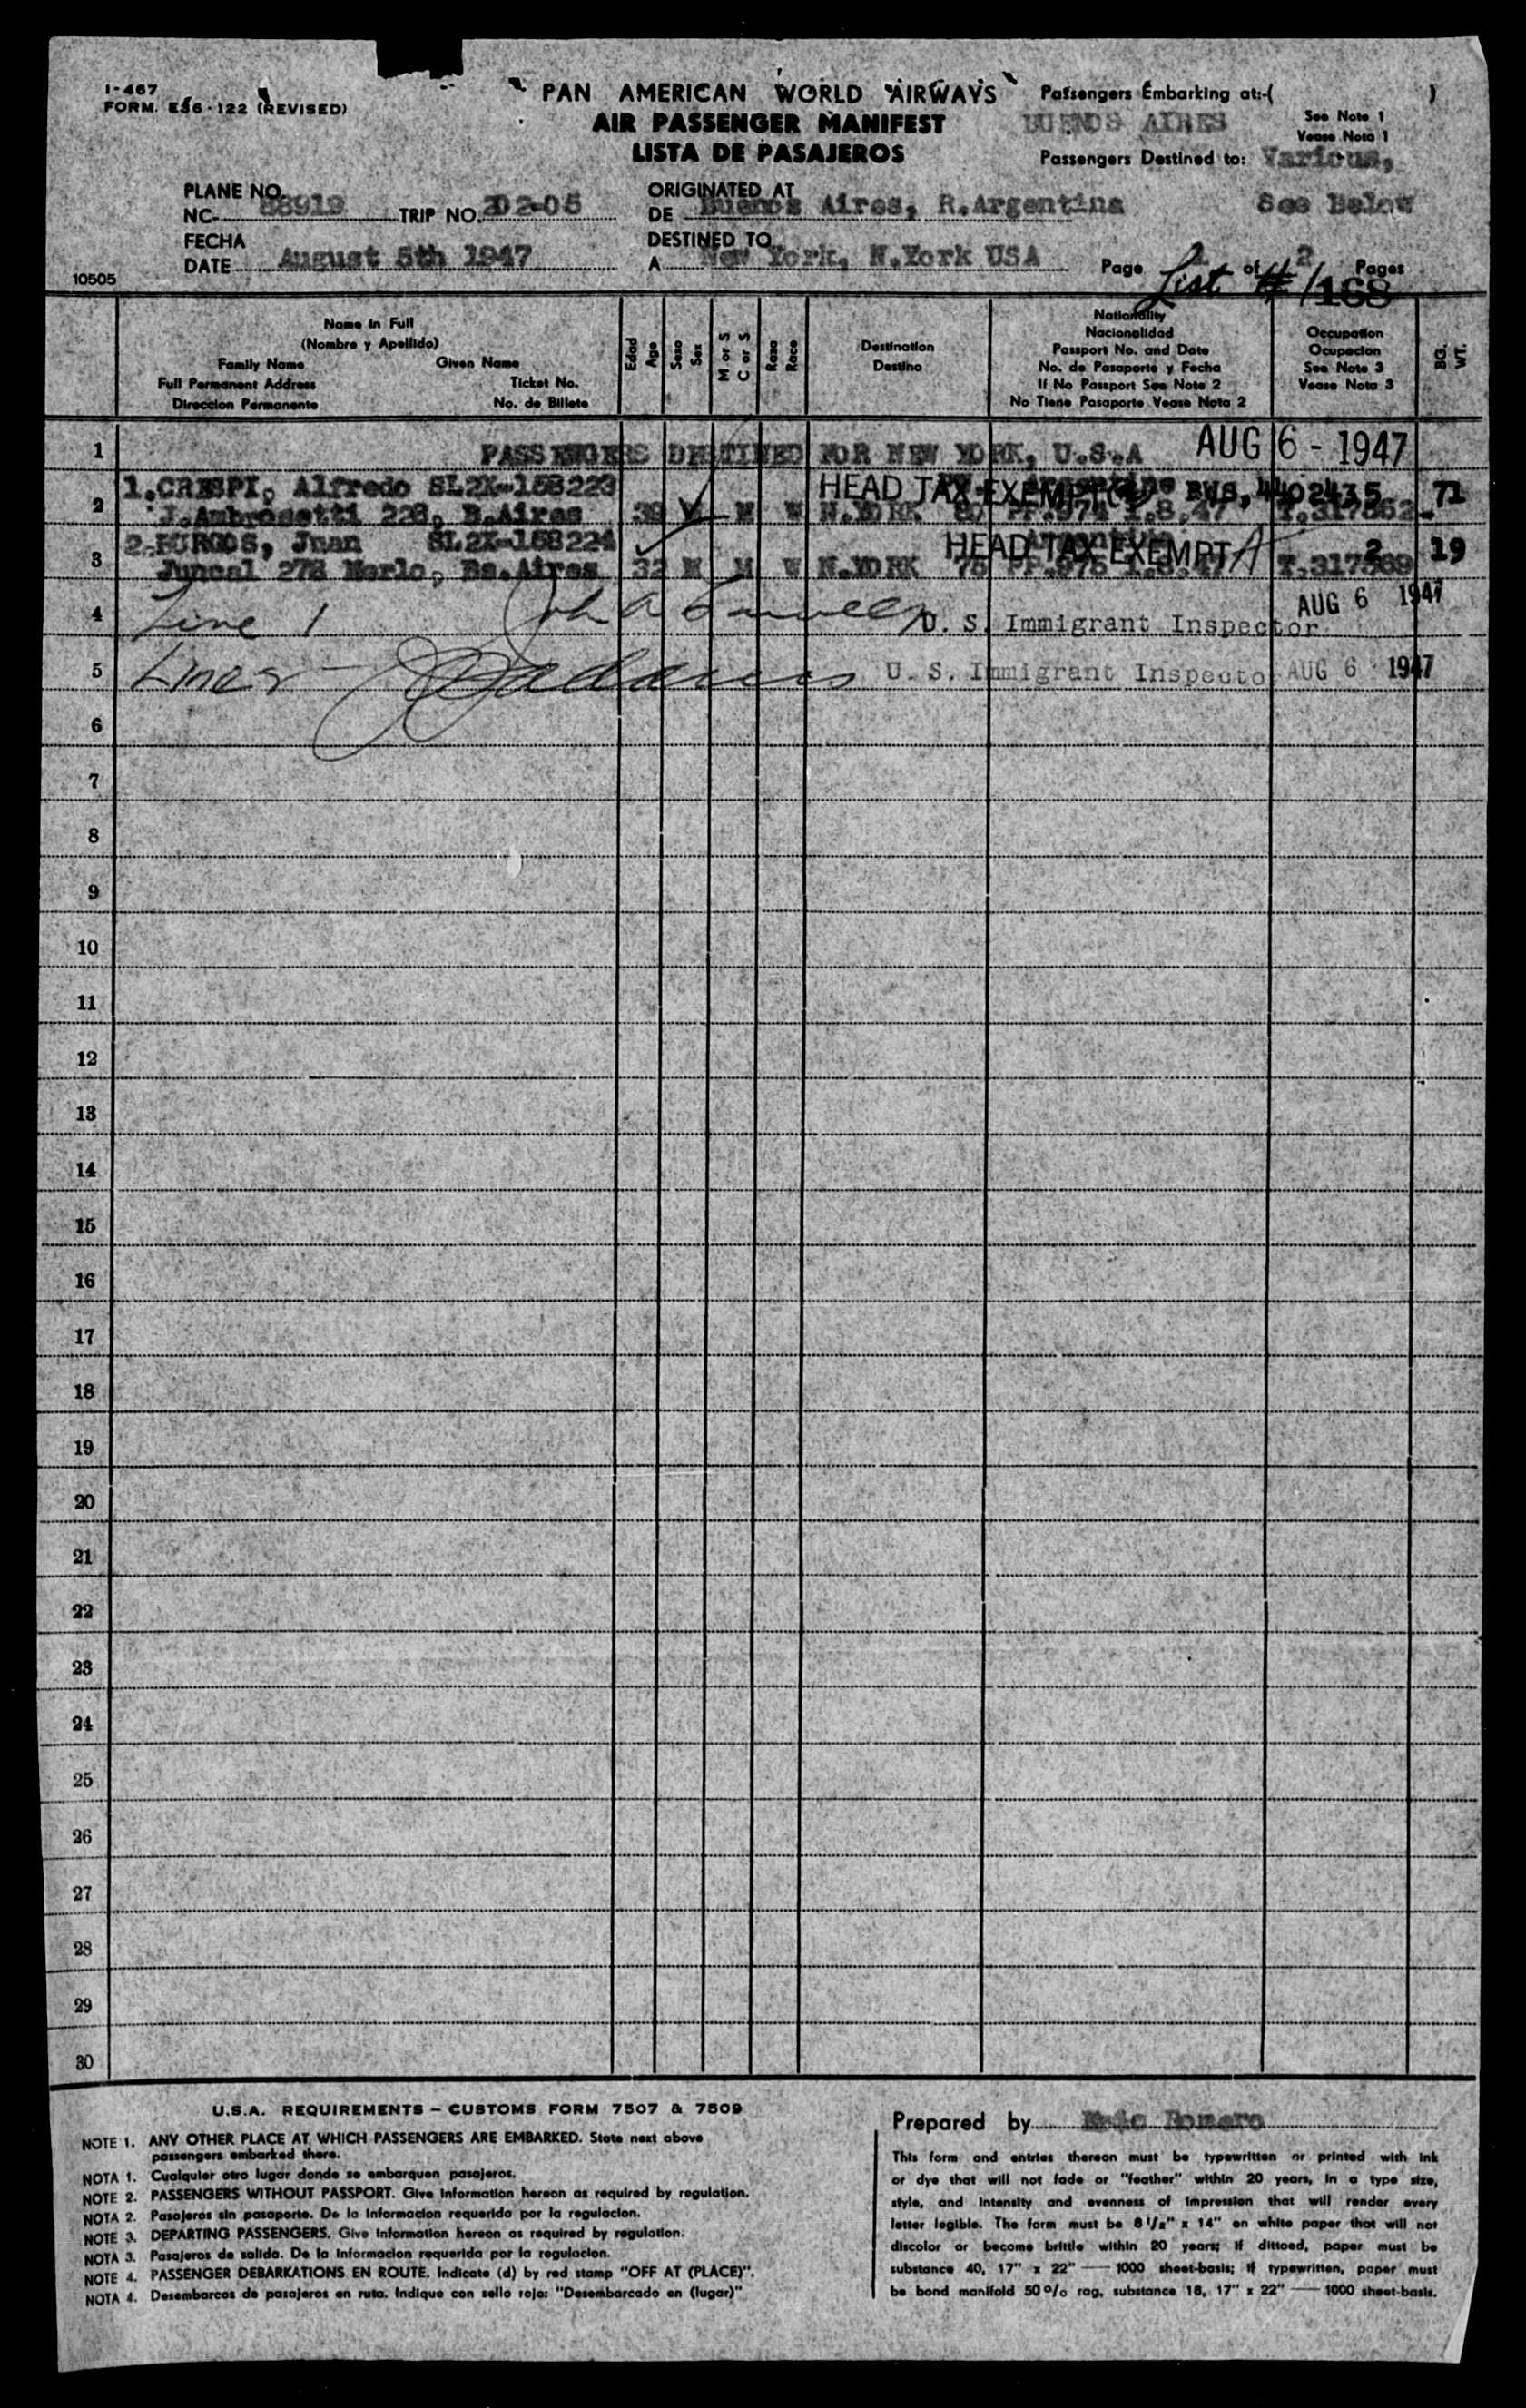 I-467
FORM. ES6-122 (REVISED)
PAN AMERICAN WORLD AIRWAYS
AIR PASSENGER MANIFEST
LISTA DE PASAJEROS
Passengers Embarking at:-( )
BUENOS AIRES
See Note 1
Vease Nota 1
Passengers Destined to: Various,
See Below
PLANE NO.
NC- 88919 TRIP NO. 202-05
ORIGINATED AT
DE Buenos Aires, R.Argentina
FECHA
DATE August 5th 1947
DESTINED TO
A New York, N.York USA
Page 1 of 2 Pages
List # 1/168
10505
Name in Full
(Nombre y Apellido)
Family Name Given Name
Full Permanent Address Ticket No.
Direccion Permanente No. de Billete
Edad
Age
Sexo
Sex
M or S
C or S
Raza
Race
Destination
Destino
Nationality
Nacionalidad
Passport No. and Date
No. de Pasaporte y Fecha
If No Passport See Note 2
No Tiene Pasaporte Vease Nota 2
Occupation
Ocupacion
See Note 3
Vease Nota 3
BG.
WT.
1 PASSENGERS DESTINED FOR NEW YORK, U.S.A AUG 6 - 1947
1.CRESPI, Alfredo SL2X-158223 HEAD TAX EXEMPT Argentine BUS, 4402435 71
2 J.Ambrosetti 228, B.Aires 39 M M W N.YORK 80 PP.974 1.8.47 T.317562
2.BURGOS, Juan SL2X-158224 HEAD TAX EXEMPT Argentine 2 19
3 Juncal 278 Merlo, Bs.Aires 32 M M W N.YORK 75 PP.975 1.8.47 T.317569
4 Line 1 John A U. S. Immigrant Inspector AUG 6 1947
5 Line 2 - U. S. Immigrant Inspector AUG 6 1947
6
7
8
9
10
11
12
13
14
15
16
17
18
19
20
21
22
23
24
25
26
27
28
29
30
U.S.A. REQUIREMENTS - CUSTOMS FORM 7507 & 7509
NOTE 1. ANY OTHER PLACE AT WHICH PASSENGERS ARE EMBARKED. State next above
passengers embarked there.
NOTA 1. Cualquier otro lugar donde se embarquen pasajeros.
NOTE 2. PASSENGERS WITHOUT PASSPORT. Give information hereon as required by regulation.
NOTA 2. Pasajeros sin pasaporte. De la informacion requerida por la regulacion.
NOTE 3. DEPARTING PASSENGERS. Give information hereon as required by regulation.
NOTA 3. Pasajeros de salida. De la informacion requerida por la regulacion.
NOTE 4. PASSENGER DEBARKATIONS EN ROUTE. Indicate (d) by red stamp "OFF AT (PLACE)".
NOTA 4. Desembarcos de pasajeros en ruta. Indique con sello rojo: "Desembarcado en (lugar)"
Prepared by Romero
This form and entries thereon must be typewritten or printed with ink
or dye that will not fade or "feather" within 20 years, in a type size,
style, and intensity and evenness of impression that will render every
letter legible. The form must be 8 1/2" x 14" on white paper that will not
discolor or become brittle within 20 years; if dittoed, paper must be
substance 40, 17" x 22" — 1000 sheet-basis; if typewritten, paper must
be bond manifold 50% rag, substance 18, 17" x 22" — 1000 sheet-basis.